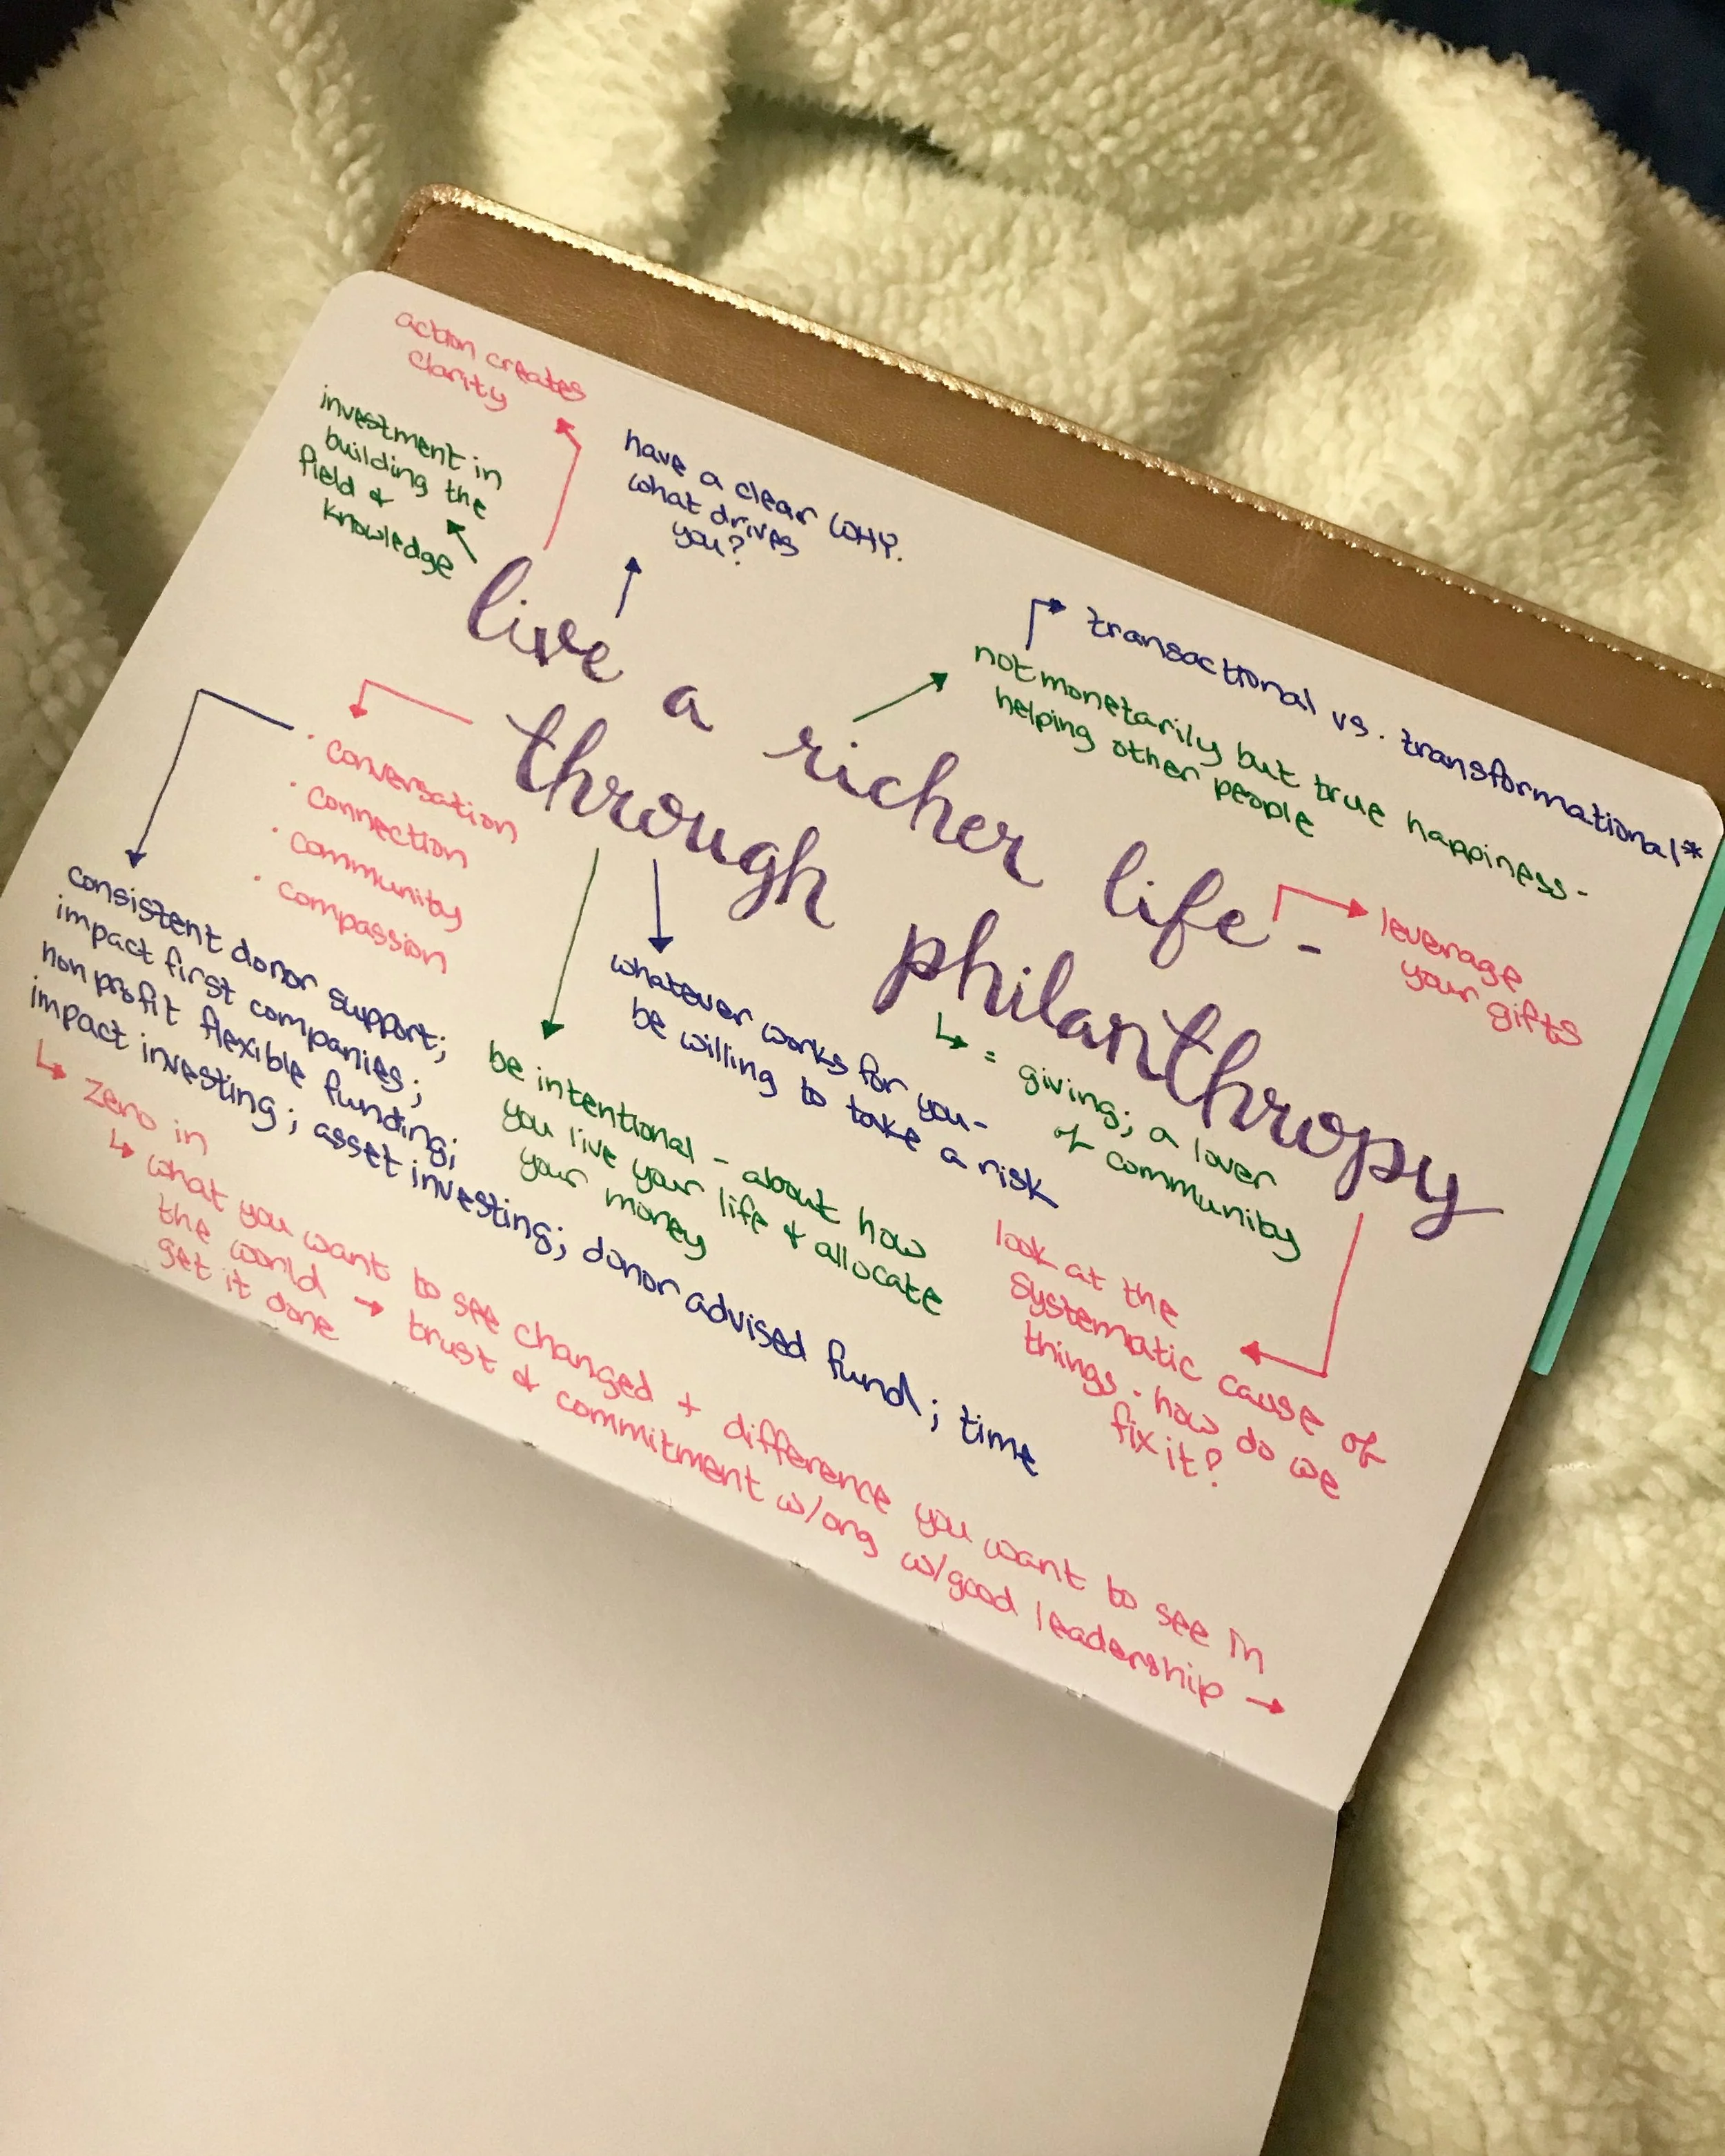 action creates
clarity
investment in
building the
field &
knowledge
have a clear WHY.
what drives
you?
transactional vs. transformational*
not monetarily but true happiness-
helping other people
live a richer life-
through philanthropy
leverage
your gifts
· conversation
· connection
· community
· compassion
consistent donor support;
impact first companies;
non profit flexible funding;
impact investing; asset investing; donor advised fund; time
whatever works for you-
be willing to take a risk
= giving; a lover
of community
be intentional - about how
you live your life & allocate
your money
look at the
systematic cause of
things. how do we
fix it?
zero in
what you want to see changed + difference you want to see in
the world → trust & commitment w/org w/good leadership →
get it done